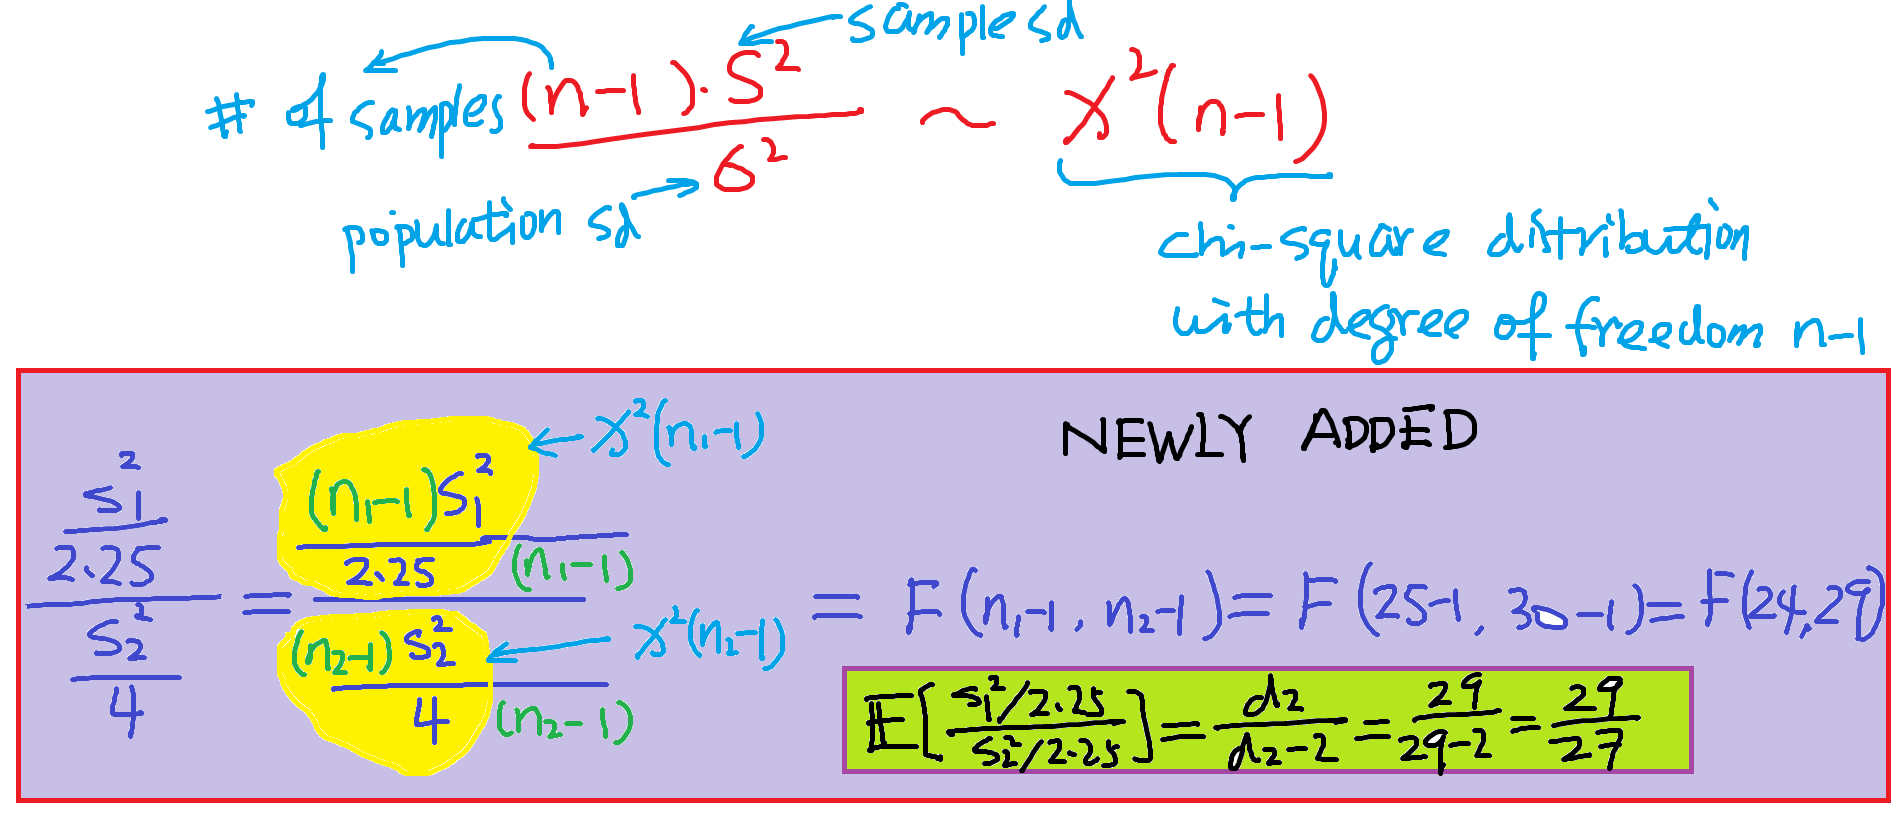 sample sd
# of samples (n-1)·S² / σ² ~ χ²(n-1)
population sd
chi-square distribution
with degree of freedom n-1
NEWLY ADDED
χ²(n₁-1)
(s₁²/2.25) / (s₂²/4) = ((n₁-1)s₁²/2.25 / (n₁-1)) / ((n₂-1)s₂²/4 / (n₂-1)) = F(n₁-1, n₂-1) = F(25-1, 30-1) = F(24,29)
χ²(n₂-1)
𝔼[(s₁²/2.25) / (s₂²/2.25)] = d₂/(d₂-2) = 29/(29-2) = 29/27